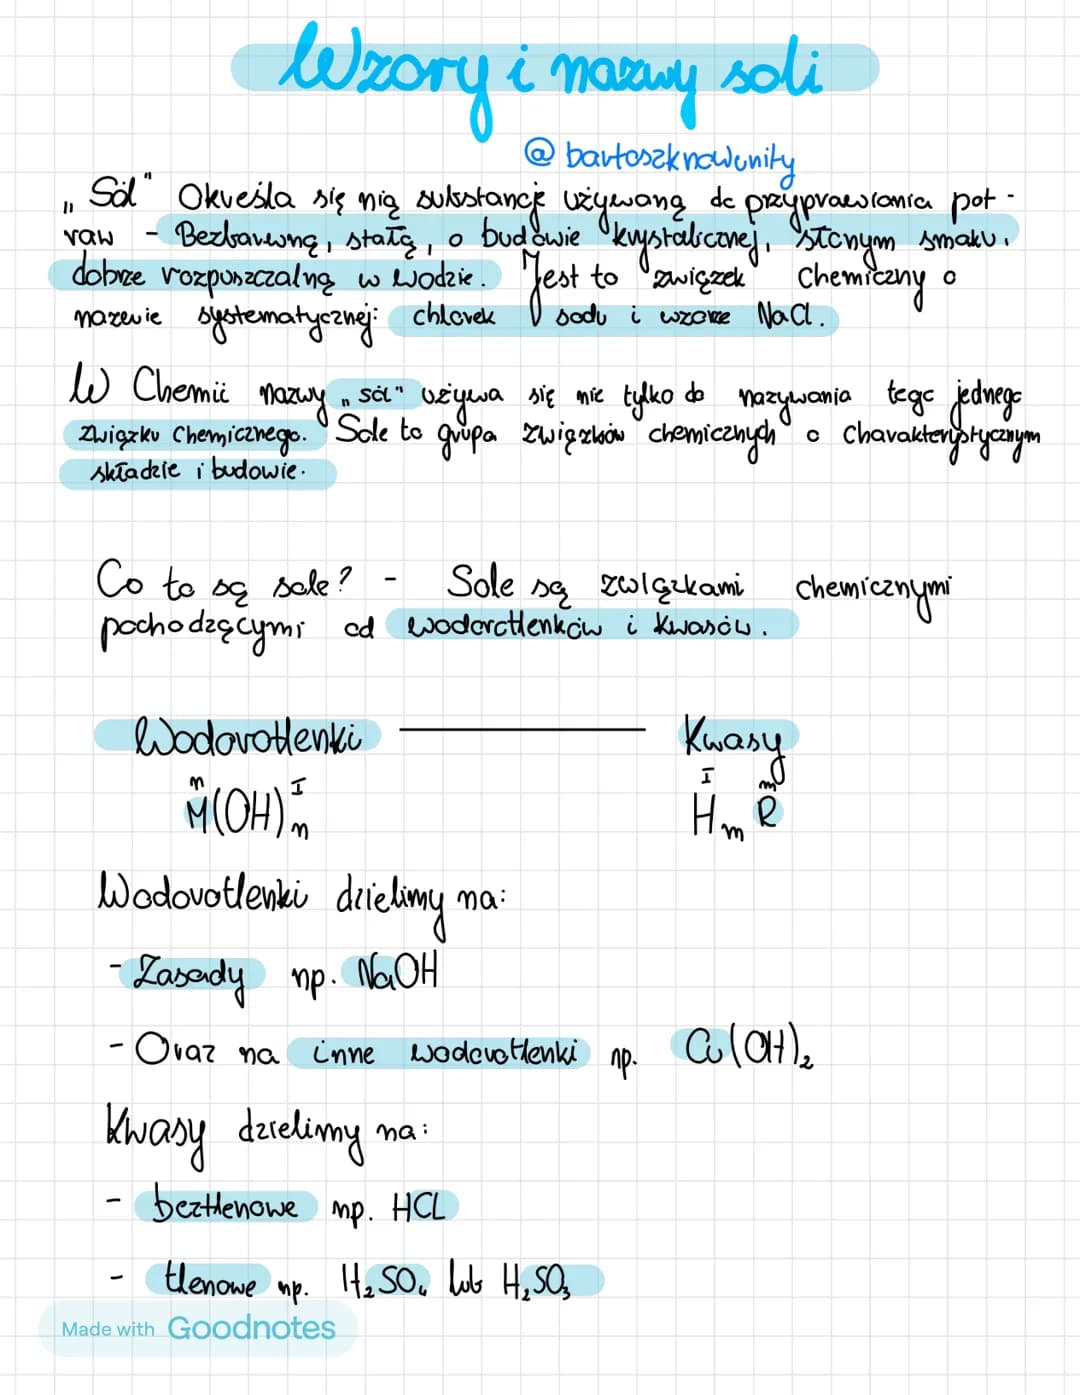 Wzory i nazwy soli
@bartoszknowunity
„Sól" Określa się nią substancję używaną do przyprawiania pot-
raw - Bezbarwną, stałą, o budowie krystalicznej, słonym smaku,
dobrze rozpuszczalną w wodzie. Jest to związek Chemiczny o
nazwie systematycznej: chlorek sodu i wzorze NaCl.
W Chemii nazwy „sól" używa się nie tylko do nazywania tego jednego
Związku Chemicznego. Sole to grupa związków chemicznych o Charakterystycznym
składzie i budowie.
Co to są sole? - Sole są związkami chemicznymi
pochodzącymi od wodorotlenków i kwasów.
Wodorotlenki ——— Kwasy
n I I m
M(OH)n Hm R
Wodorotlenki dzielimy na:
- Zasady np. NaOH
- Oraz na inne wodorotlenki np. Cu(OH)₂
Kwasy dzielimy na:
- beztlenowe np. HCL
- tlenowe np. H₂SO₄ lub H₂SO₃
Made with Goodnotes